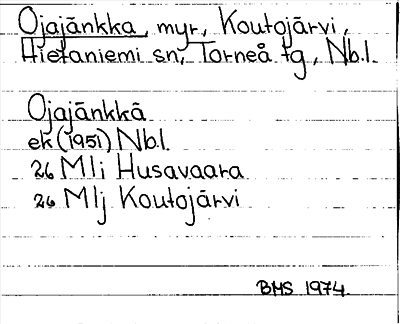 Ojajänkka, myr, Koutojärvi,
Hietaniemi sn, Torneå tg, Nb.l.
Ojajänkkä
ek (1951) Nb.l.
26 Mli Husavaara
26 Mlj Koutojärvi
BMS 1974.